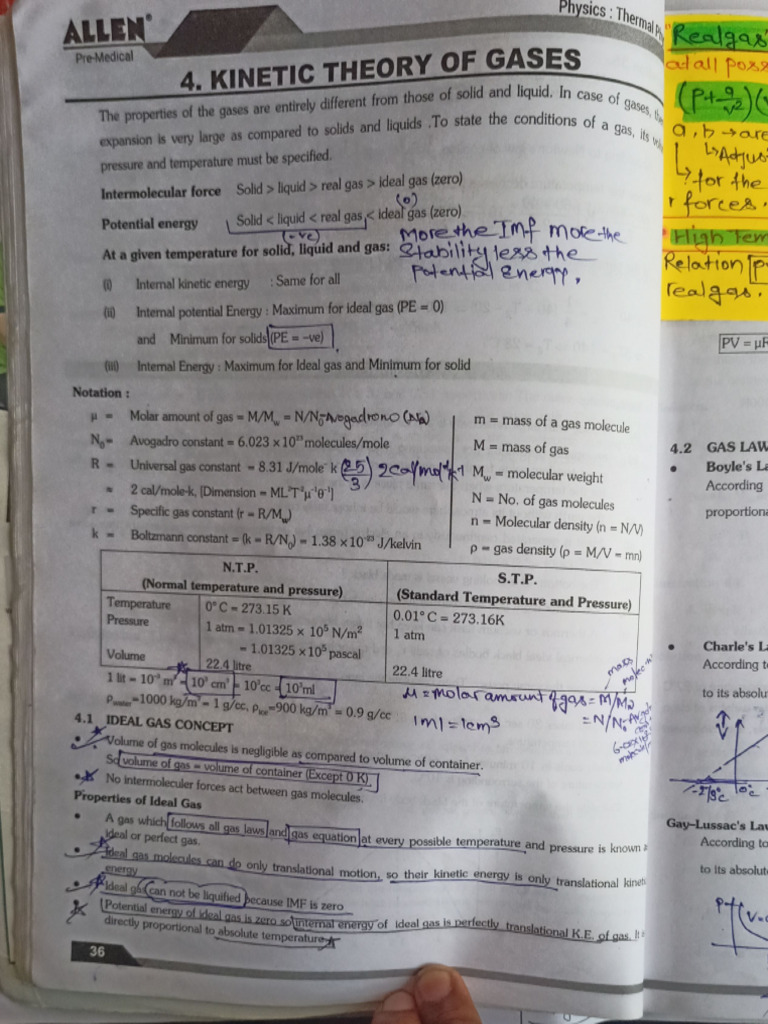 ALLEN®
Pre-Medical
Physics : Thermal
4. KINETIC THEORY OF GASES
The properties of the gases are entirely different from those of solid and liquid. In case of gases,
expansion is very large as compared to solids and liquids .To state the conditions of a gas, its
pressure and temperature must be specified.
Intermolecular force Solid > liquid > real gas > ideal gas (zero)
(0)
Potential energy Solid < liquid < real gas < ideal gas (zero)
(-ve)
More the Imf more the
Stability less the
Potential Energy.
At a given temperature for solid, liquid and gas:
(i) Internal kinetic energy : Same for all
(ii) Internal potential Energy : Maximum for ideal gas (PE = 0)
and Minimum for solids (PE = –ve)
(iii) Internal Energy : Maximum for Ideal gas and Minimum for solid
Notation :
μ = Molar amount of gas = M/Mw = N/N₀ Avogadro no (NA)
N₀ = Avogadro constant = 6.023 × 10²³ molecules/mole
R = Universal gas constant = 8.31 J/mole- k (25/3) 2 cal/mol⁻¹k⁻¹
≈ 2 cal/mole-k, [Dimension = ML²T⁻²μ⁻¹θ⁻¹]
r = Specific gas constant (r = R/Mw)
k = Boltzmann constant = (k = R/N₀) = 1.38 × 10⁻²³ J/kelvin
m = mass of a gas molecule
M = mass of gas
Mw = molecular weight
N = No. of gas molecules
n = Molecular density (n = N/V)
ρ = gas density (ρ = M/V = mn)
N.T.P.
(Normal temperature and pressure)
S.T.P.
(Standard Temperature and Pressure)
Temperature 0° C = 273.15 K 0.01° C = 273.16K
Pressure 1 atm = 1.01325 × 10⁵ N/m² 1 atm
= 1.01325 × 10⁵ pascal
Volume 22.4 litre 22.4 litre
1 lit = 10⁻³ m³ = 10³ cm³ = 10³cc = 10³ml
ρwater=1000 kg/m³ = 1 g/cc, ρice=900 kg/m³ = 0.9 g/cc
μ = molar amount of gas = M/Mw
= N/N₀
mass
1ml = 1cm³
4.1 IDEAL GAS CONCEPT
Volume of gas molecules is negligible as compared to volume of container.
So volume of gas = volume of container (Except 0 K)
No intermoleculer forces act between gas molecules.
Properties of Ideal Gas
• A gas which follows all gas laws and gas equation at every possible temperature and pressure is known
ideal or perfect gas.
• Ideal gas molecules can do only translational motion, so their kinetic energy is only translational
energy
• Ideal gas can not be liquified because IMF is zero
Potential energy of ideal gas is zero so internal energy of ideal gas is perfectly translational K.E. of gas. It
directly proportional to absolute temperature
36
Real gas
at all
(P+a/v²)
a, b → are
for the
forces.
High
Relation
real gas.
PV =
4.2 GAS
• Boyle's
According
• Charle's
According
to its
-273°c 0°c
Gay–Lussac's
According
to its
P